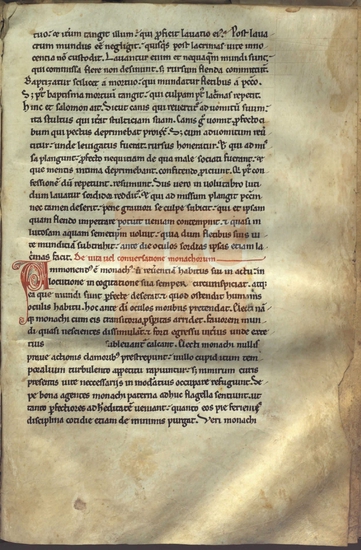 tuo. et iterum tangit illum. qui proficit lavatio eius. Post lava
crum mundus esse negligit. quisquis post lacrimas vite inno
centia non custodit. Lavantur enim et nequaquam mundi sunt.
qui commissa flere non desinunt. et rursum flenda committunt.
Baptizatur scilicet a mortuo. qui mundatur fletibus a peccato.
Sed post baptisma mortuum tangit. qui culpam post lacrimas repetit.
Hinc et salomon ait. Sicut canis qui revertitur ad vomitum suum.
ita stultus qui iterat stulticiam suam. Canis cum vomit. profecto
cibum qui pectus deprimebat proicit. Sed cum ad vomitum rever
titur. unde levigatus fuerat. rursus honeratur. Et qui admis
sa plangunt. profecto nequitiam de qua male sociati fuerant. et
que mentis intima deprimebant. confitendo proiciunt. Que post con
fessionem dum repetunt. resumunt. Sus vero in volutabro luti
dum lavatur sordidior redditur. et qui admissum plangit pecca
nec tamen deserit. pene graviori se culpe subicit. qui et ipsam
quam flendo impetrare potuit veniam contempnit. et quasi in
lutosam aquam semetipsum volvit. quia dum fletibus suis vi
te mundiciam subtrahit. ante dei oculos sordidas ipsas etiam la
crimas facit. De vita vel conversatione monachorum
Ammonendus est monachus. ut reverentiam habitus sui in actu. in
locutione in cogitatione sua semper circumspiciat. atque
ea que mundi sunt perfecte deserat. et quod ostendit humanis
oculis habitu. hoc ante dei oculos moribus pretendat. Electi nam
que monachi cum eis transitoria prosperitas arridet. favorem mun
di quasi nescientes dissimulant. et forti egressu intus unde exte
rius sublevantur calcant. Electi monachi nullis
prave actionis clamoribus prestrepunt. nullo cupiditatum tem
poralium turbulento appetitu rapiuntur. sed nimirum curis
presentis vite necessariis inmoderatius occupari refugiunt. Se
pe bona agentes monachi paterna adhuc flagella sentiunt. ut
tanto perfectiores ad hereditatem veniant. quanto eos pie feriens
disciplina cotidie etiam de minimis purgat. Veri monachi